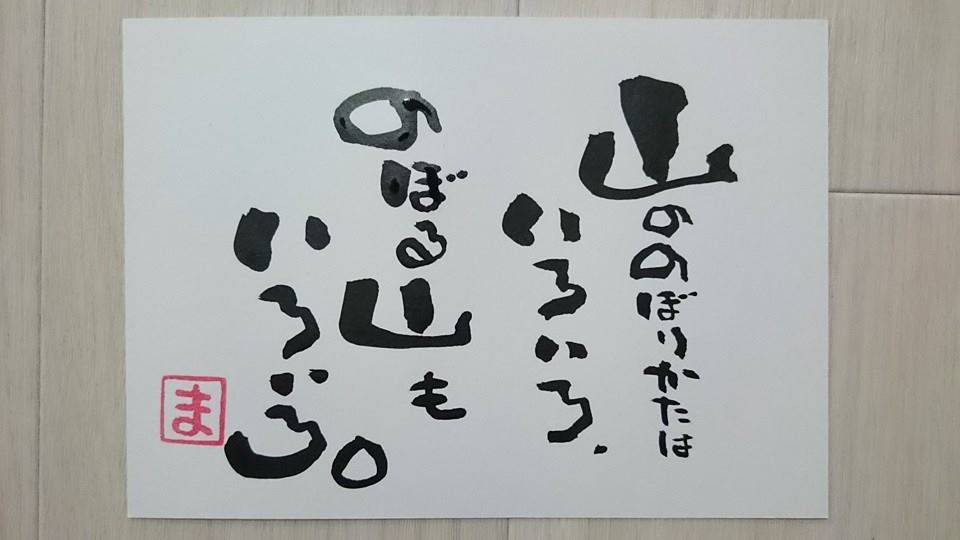 山ののぼりかたは
いろいろ.
のぼる山も
いろいろ。
ま